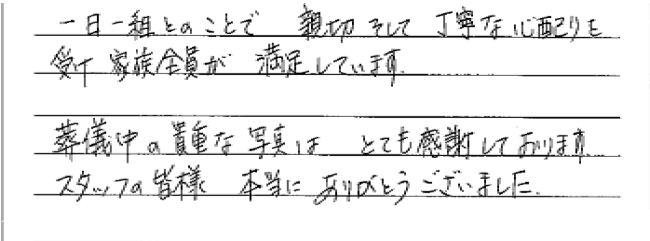 一日一組とのことで 親切そして 丁寧な心配りを
受け 家族全員が 満足しています。
葬儀中の貴重な写真は とても感謝しております
スタッフの皆様 本当に ありがとうございました。